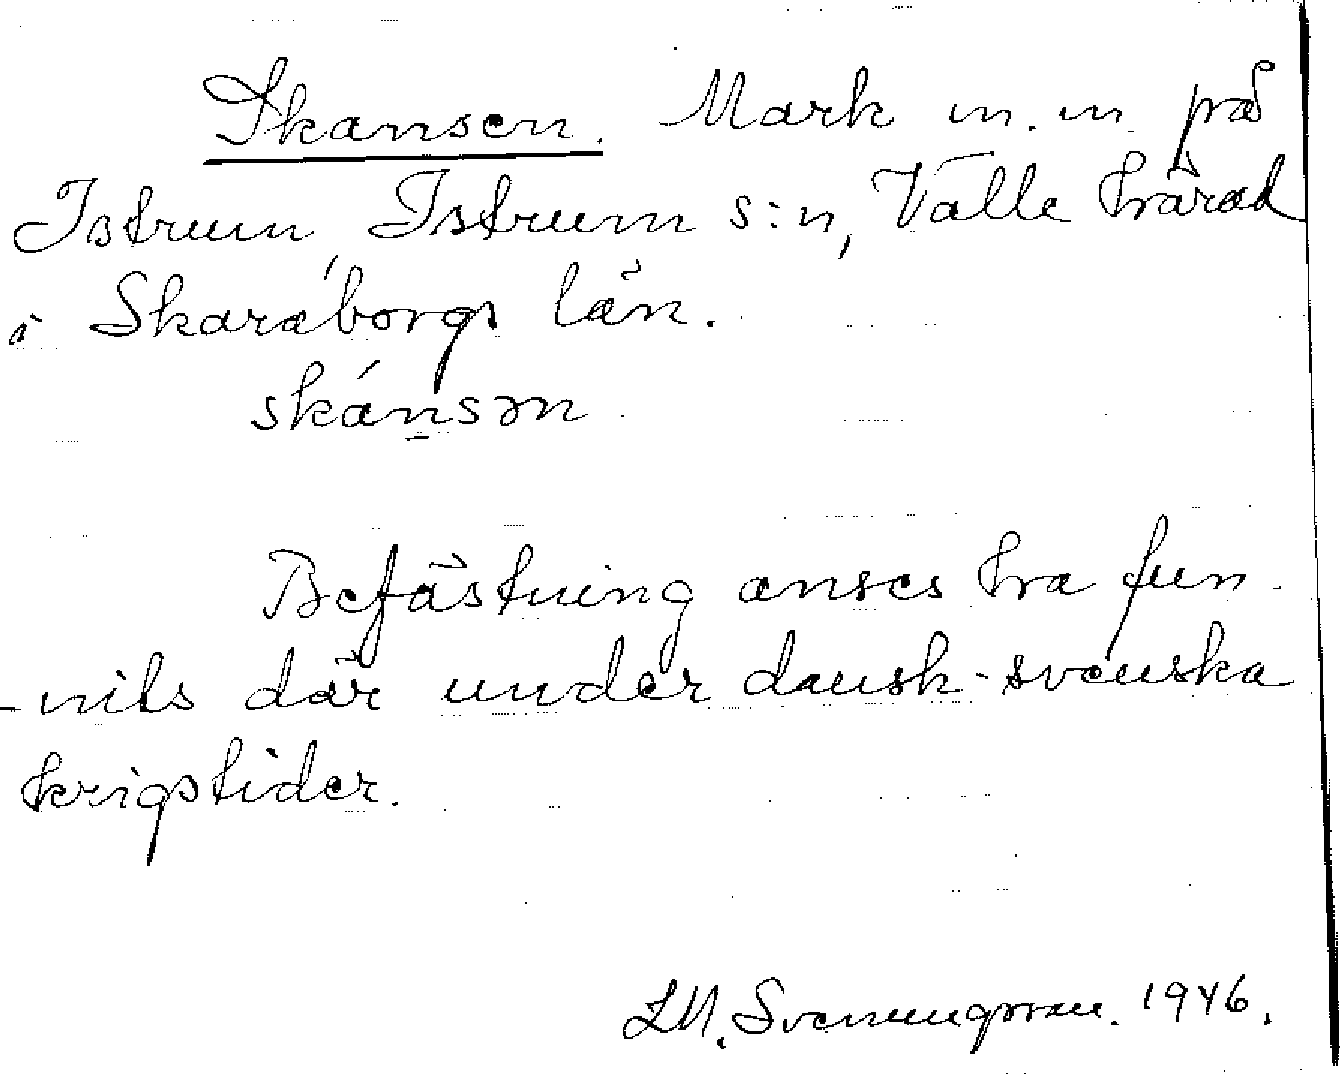 Skansen. Mark m.m. på
Istrum, Istrum s:n, Valle härad
i Skaraborgs län.
skánsən.
Befästning anses ha fun-
-nits där under dansk-svenska
krigstider.
LM. Svenungsson. 1946.